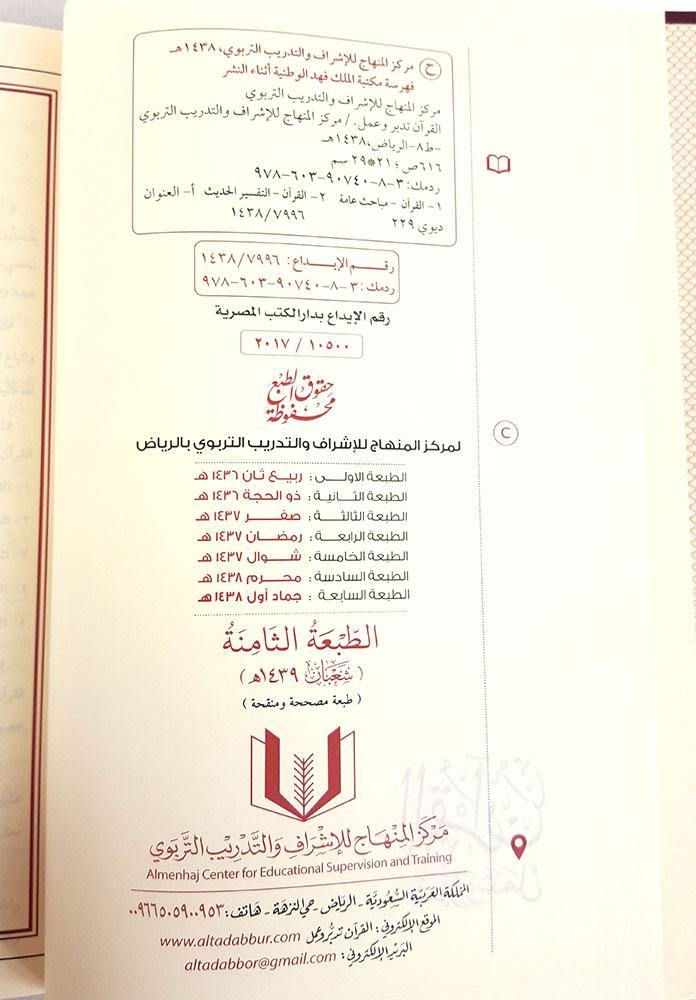 ح مركز المنهاج للإشراف والتدريب التربوي، ١٤٣٨هـ
فهرسة مكتبة الملك فهد الوطنية أثناء النشر
مركز المنهاج للإشراف والتدريب التربوي
القرآن تدبر وعمل. / مركز المنهاج للإشراف والتدريب التربوي
-ط٨-الرياض،١٤٣٨هـ
٦١٦ص ؛ ٢١*٢٩ سم
ردمك: ٣-٨-٩٠٧٤٠-٦٠٣-٩٧٨
١- القرآن - مباحث عامة ٢- القرآن - التفسير الحديث أ- العنوان
ديوي ٢٢٩ ١٤٣٨/٧٩٩٦
رقم الإيداع: ١٤٣٨/٧٩٩٦
ردمك: ٣-٨-٩٠٧٤٠-٦٠٣-٩٧٨
رقم الإيداع بدار الكتب المصرية
١٠٥٠٠ / ٢٠١٧
حقوق الطبع محفوظة
C
لمركز المنهاج للإشراف والتدريب التربوي بالرياض
الطبعة الاولى: ربيع ثان ١٤٣٦ هـ
الطبعة الثانية: ذو الحجة ١٤٣٦ هـ
الطبعة الثالثة: صفر ١٤٣٧ هـ
الطبعة الرابعة: رمضان ١٤٣٧ هـ
الطبعة الخامسة: شوال ١٤٣٧ هـ
الطبعة السادسة: محرم ١٤٣٨ هـ
الطبعة السابعة: جماد أول ١٤٣٨ هـ
الطَّبْعَةُ الثَّامِنَةُ
(شَعْبَان ١٤٣٩هـ)
(طبعة مصححة ومنقحة)
مَركَزُ المِنْهَاجِ لِلإِشْرَافِ وَالتَّدْرِيبِ التَّرْبَوِي
Almenhaj Center for Educational Supervision and Training
المملكة العربية السعودية - الرياض - حي النزهة - هاتف: ٠٠٩٦٦٥٠٥٩٠٠٩٥٣
الموقع الإلكتروني: القرآن تدبر وعمل www.altadabbur.com
البريد الإلكتروني: altadabbor@gmail.com